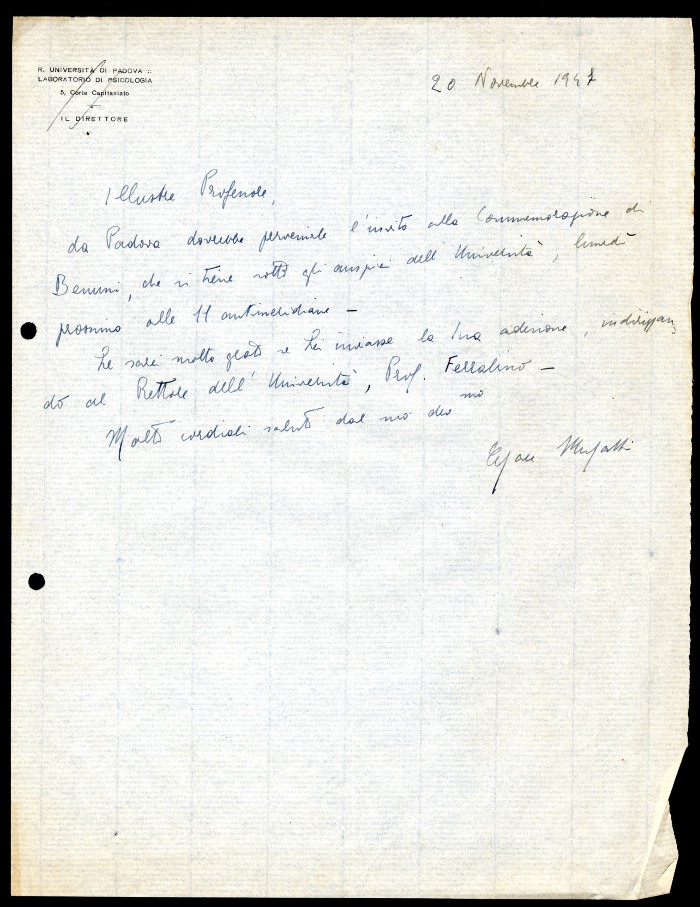 R. UNIVERSITÀ DI PADOVA ::
LABORATORIO DI PSICOLOGIA
5, Corte Capitaniato
IL DIRETTORE
20 Novembre 1947
Illustre Professore,
da Padova dovrebbe pervenirle l'invito alla Commemorazione di
Benussi, che si tiene sotto gli auspici dell'Università, lunedì
prossimo alle 11 antimeridiane –
Le sarei molto grato se Lei inviasse la Sua adesione, indirizzan
do al Rettore dell'Università, Prof. Ferrabino –
Molti cordiali saluti dal suo dev mo
Cesare Musatti